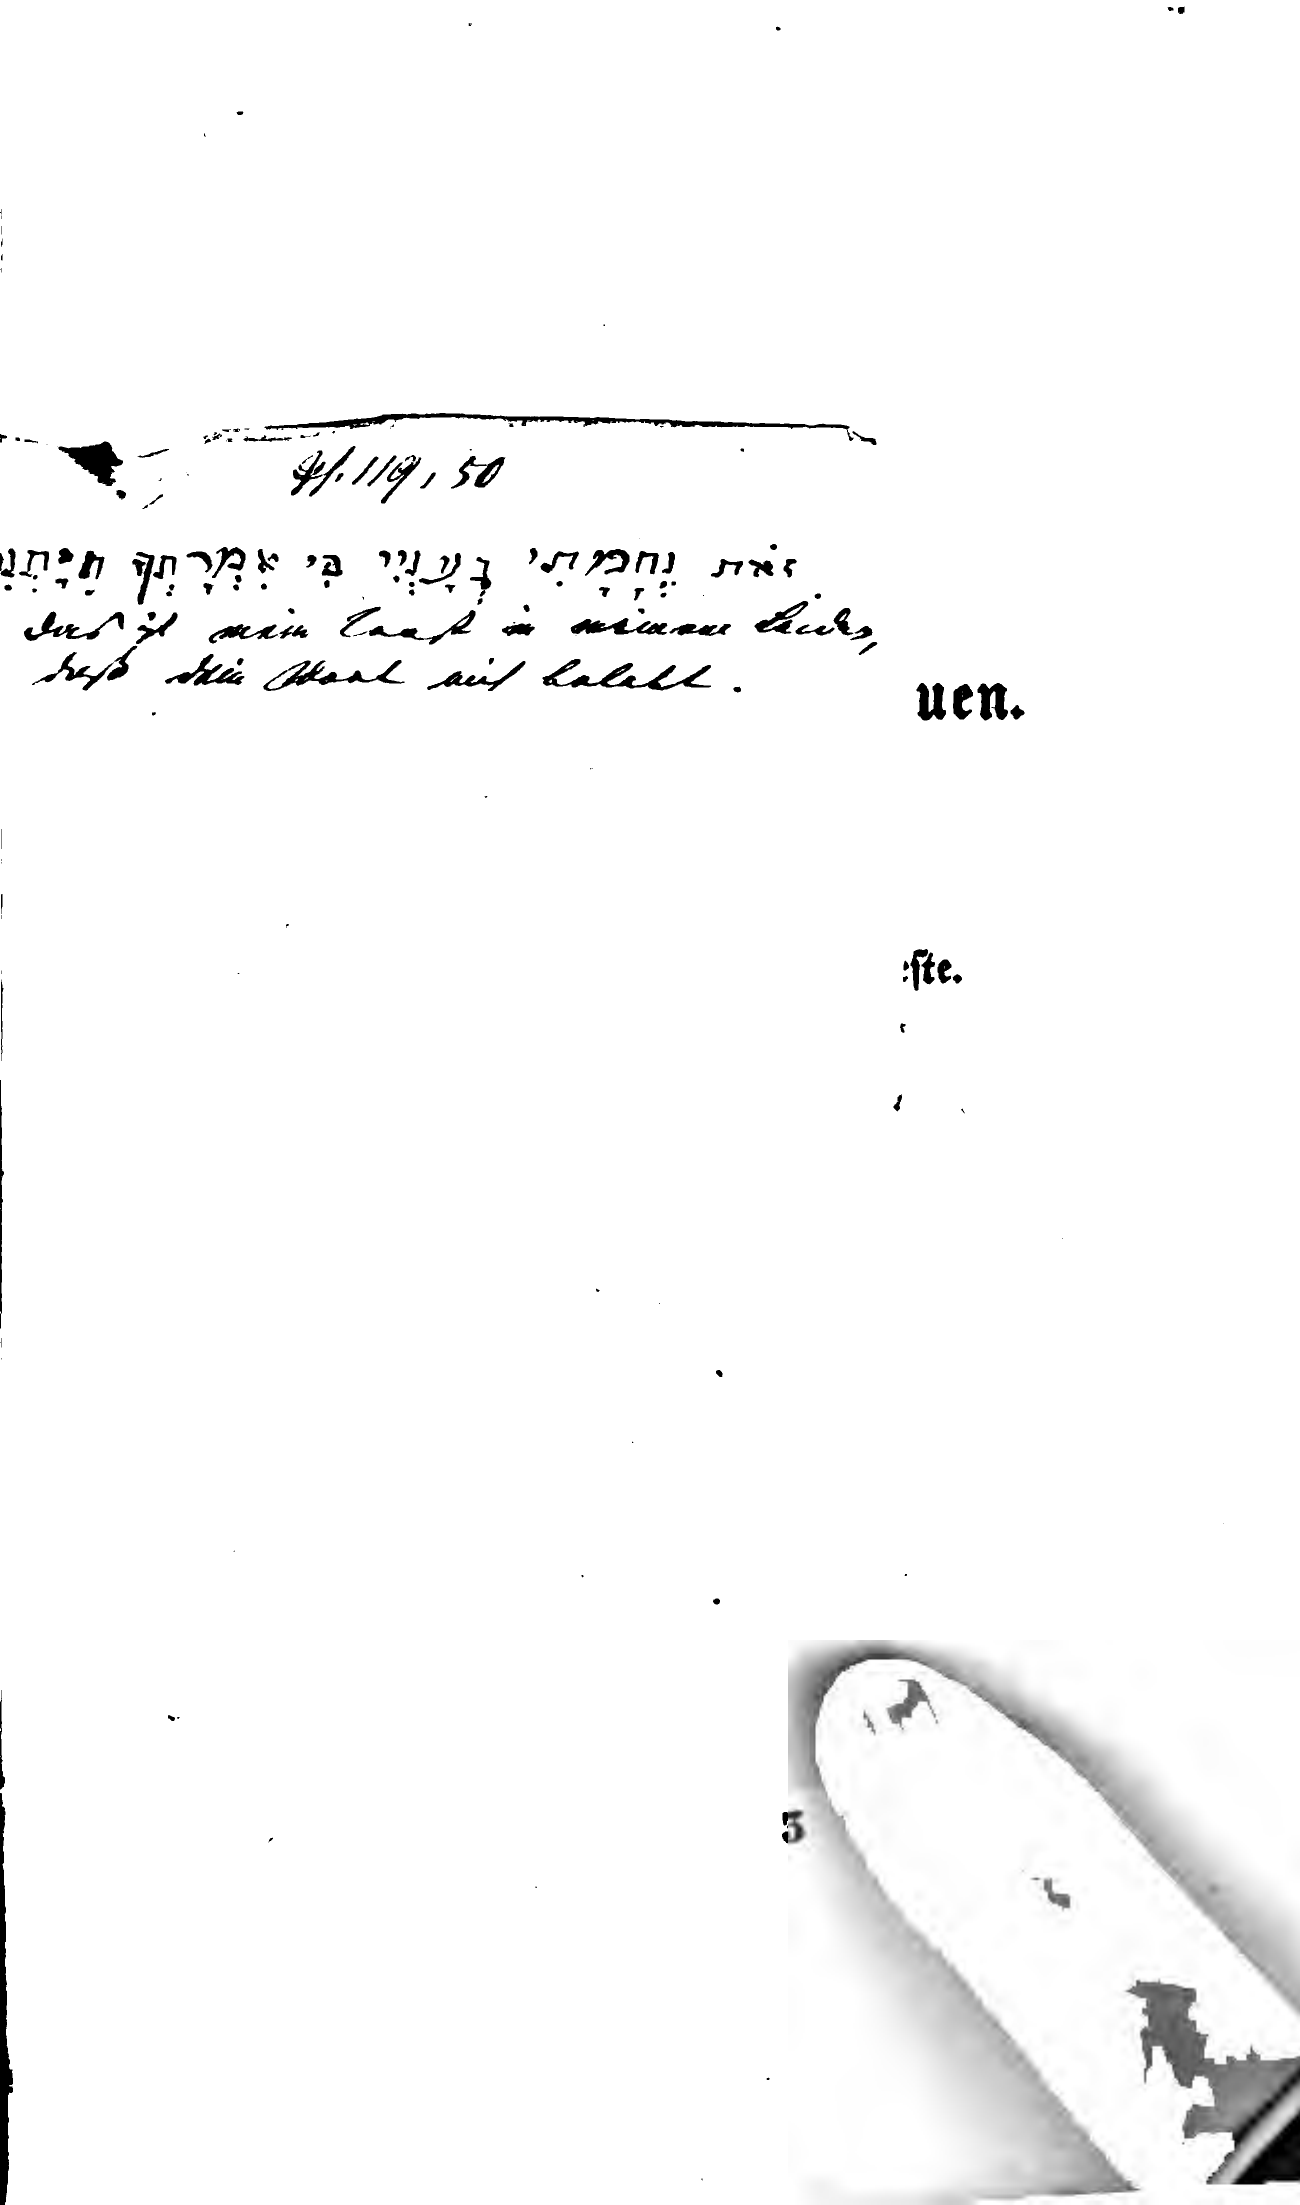 Ps. 119, 50
זֹאת נֶחָמָתִי בְעָנְיִי כִּי אִמְרָתְךָ חִיָּתְנִ
das ist mein Trost in meinem Leiden,
daß dein Wort mich belebt.
uen.
ſte.
5